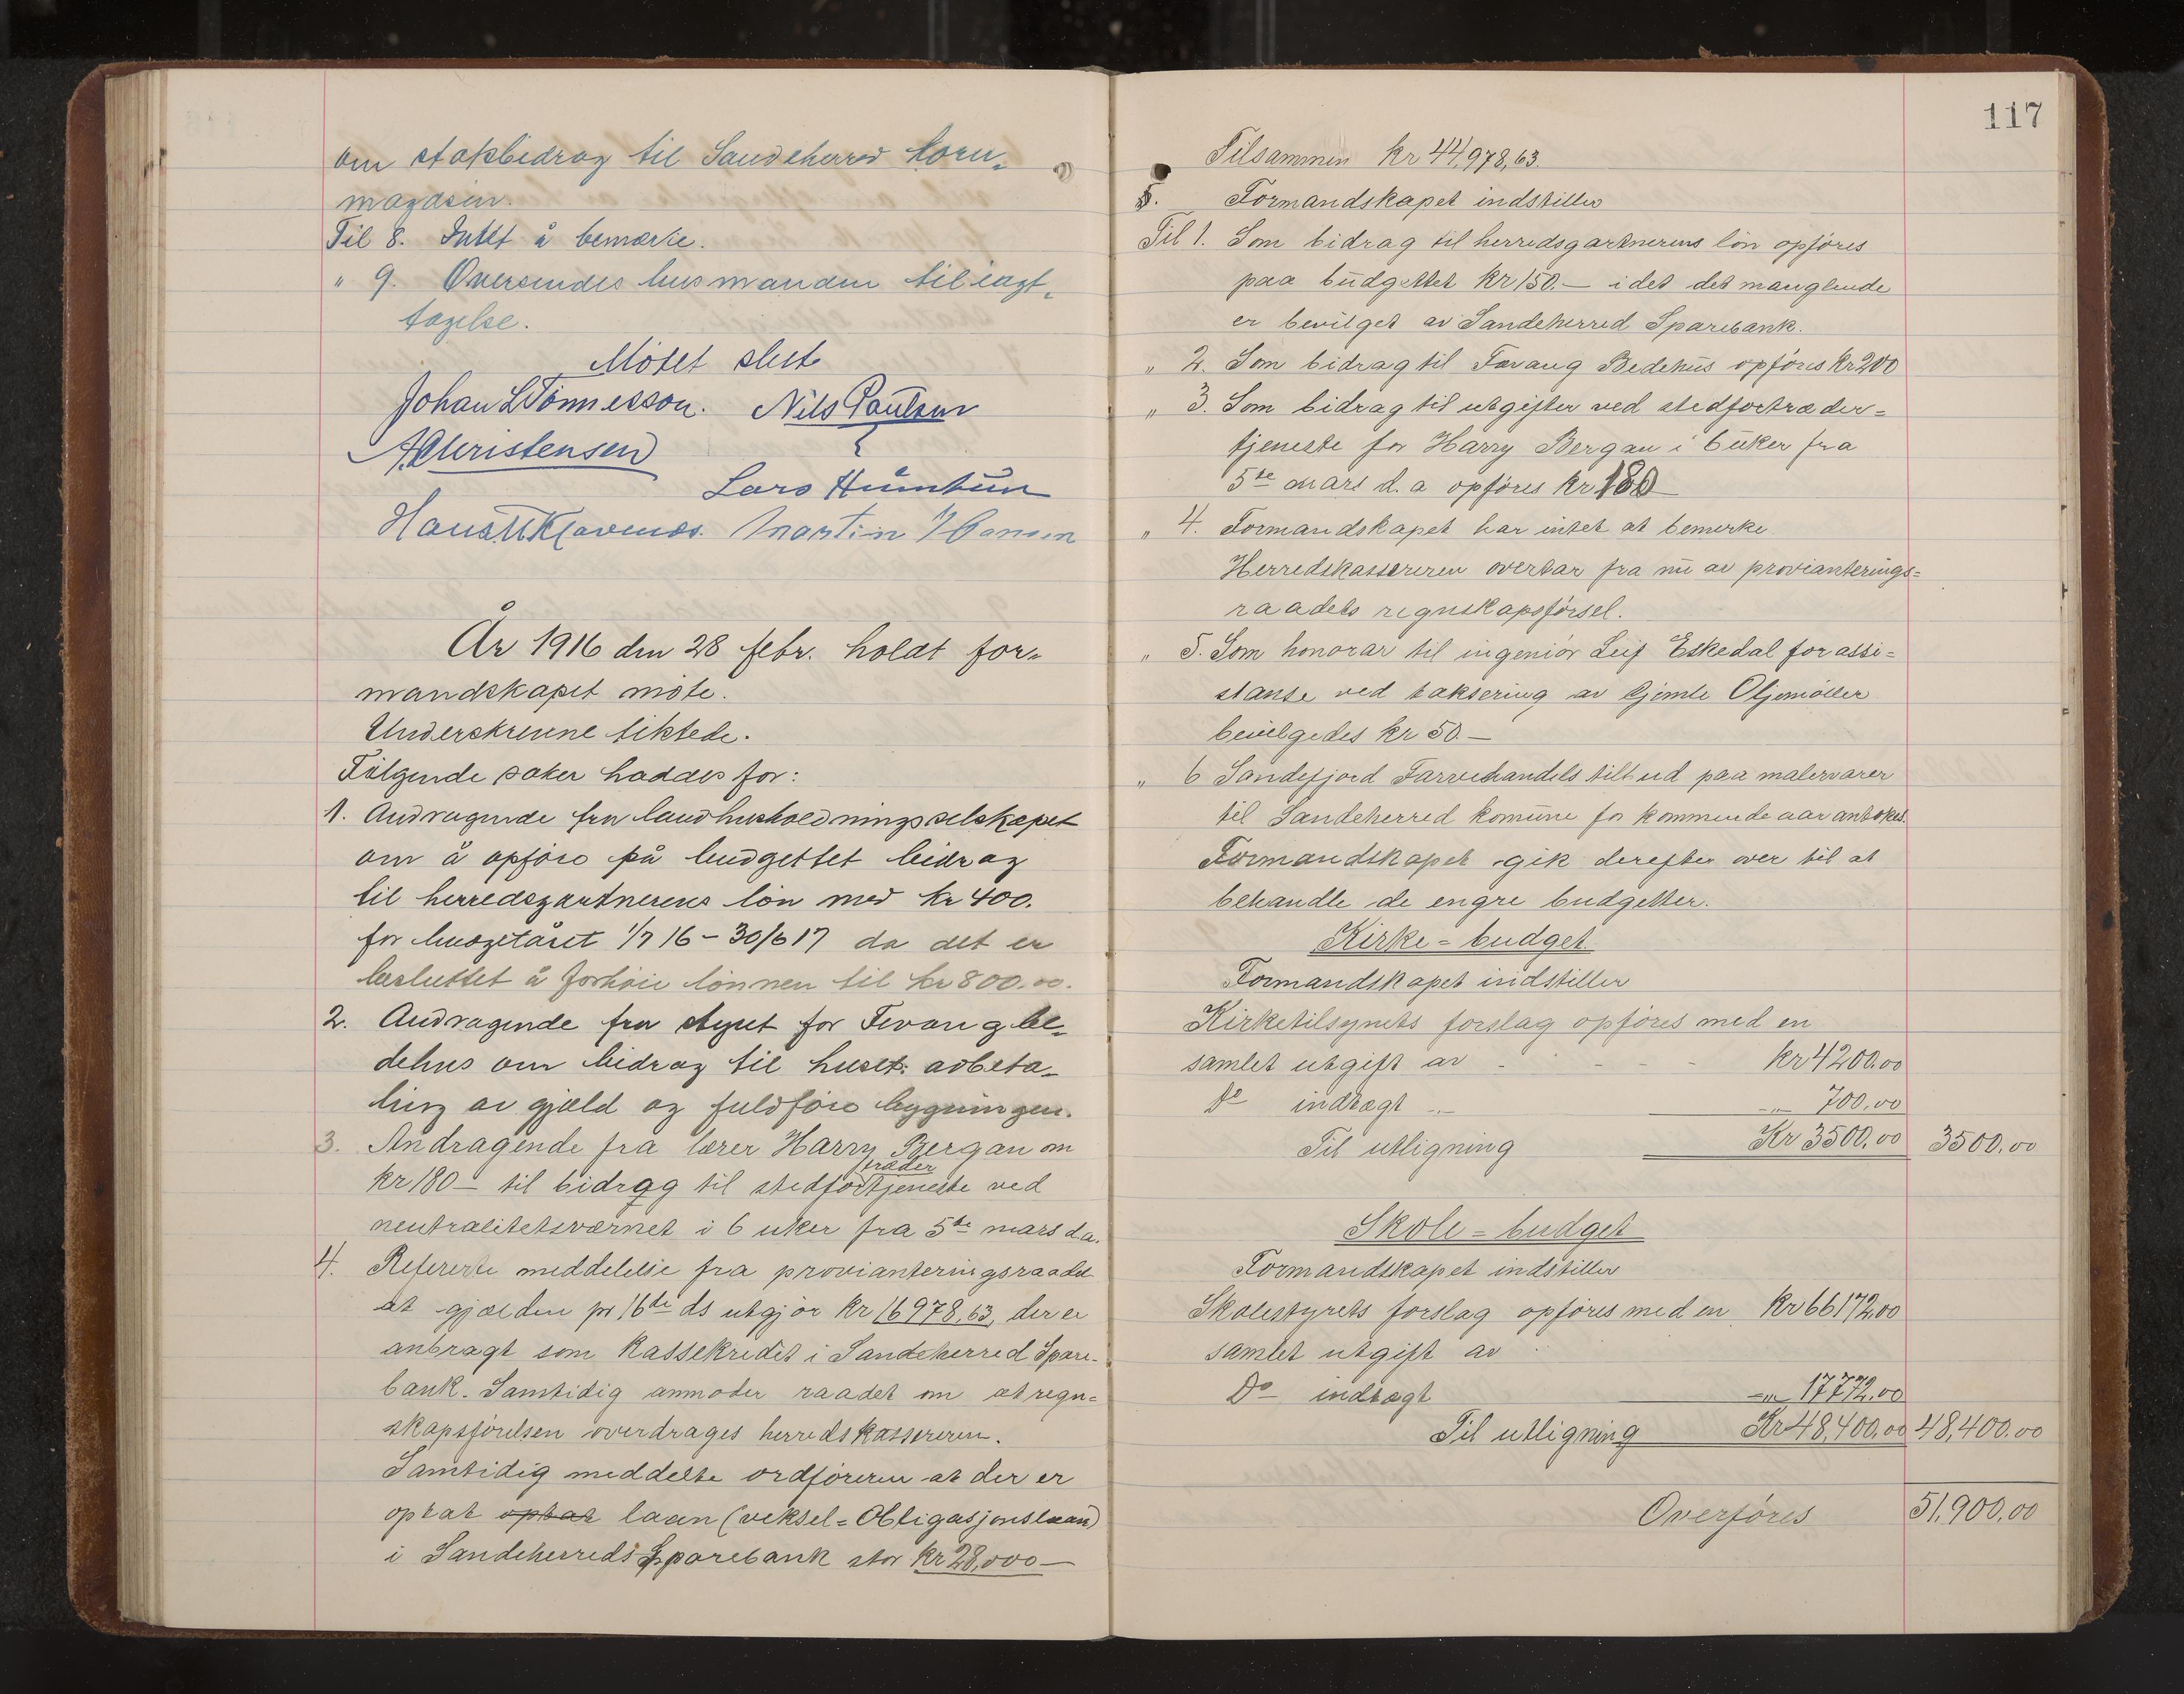 om stapbidrag til Sandeherred korn-
magasin.
Til 8. Intet å bemærke.
" 9. Oversendes husmanden til iagt-
tagelse.
Møtet slut
Johan L Tønnesson. Nils Paulsen
A Christensen
Lars Humtun
Hans M Klavenes. Martin Hansen
År 1916 den 28 febr. holdt for-
mandskapet møte.
Underskrevne tiltstede.
Følgende saker haddes for:
1. Andragende fra landhusholdningsselskapet
om å opføre på budgettet bidrag
til herredsgartnerens løn med kr 400.
for budgetåret 1/7 16 - 30/6 17 da det er
besluttet å forhøie lønnen til kr 800.00.
2. Andragende fra styret for Fevang be-
dehus om bidrag til huset: avbeta-
ling av gjæld og fuldføre bygningen.
3. Andragende fra lærer Harry Bergan om
træder
kr 180 - til bidrag til stedfortjeneste ved
neutralitetsværnet i 6 uker fra 5te mars d.a.
4. Refererte meddelelse fra provianteringsraadet
at gjælden pr 16de ds utgjør kr 16978,63, der er
anbragt som Kassekredit i Sandeherred Spare-
bank. Samtidig anmoder raadet om at regn-
skapsførelsen overdrages herredskassereren.
Samtidig meddelte ordføreren at der er
optat optat laan (veksel = Obligasjonslaan)
i Sandeherreds Sparebank stor kr 28,000 -
117
Tilsammen kr 44,978,63.
5. Formandskapet indstiller
Til 1. Som bidrag til herredsgartnerens løn opføres
paa budgettet kr 150.- idet det manglende
er bevilget av Sandeherred Sparebank.
" 2. Som bidrag til Fevang Bedehus opføres kr 200
" 3. Som bidrag til utgifter ved stedfortræder=
tjeneste for Harry Bergan i 6 uker fra
5te mars d.a opføres kr 180 -
" 4. Formandskapet har intet at bemerke
Herredskassereren overtar fra nu av provianterings=
raadets regnskapsførsel.
" 5. Som honorar til ingeniør Leif Eskedal for assi=
stanse ved taksering av Gimle Oljemøller
bevilgedes kr 50.-
" 6 Sandefjord Farvehandels tilbud paa malervarer
til Sandeherred komune for kommende aar antokes.
Formandskapet gik derefter over til at
behandle de engre budgetter.
Kirke = budget
Formandskapet indstiller
Kirketilsynets forslag opføres med en
samlet utgift av - - - - kr 4200.00
Do indtægt -"- -"- 700.00
Til utligning Kr 3500.00 3500.00
Skole = budget
Formandskapet indstiller
Skolestyrets forslag opføres med en Kr 66172.00
samlet utgift av
Do indtægt -"- 17772.00
Til utligning Kr 48,400.00 48,400.00
Overføres 51,900.00